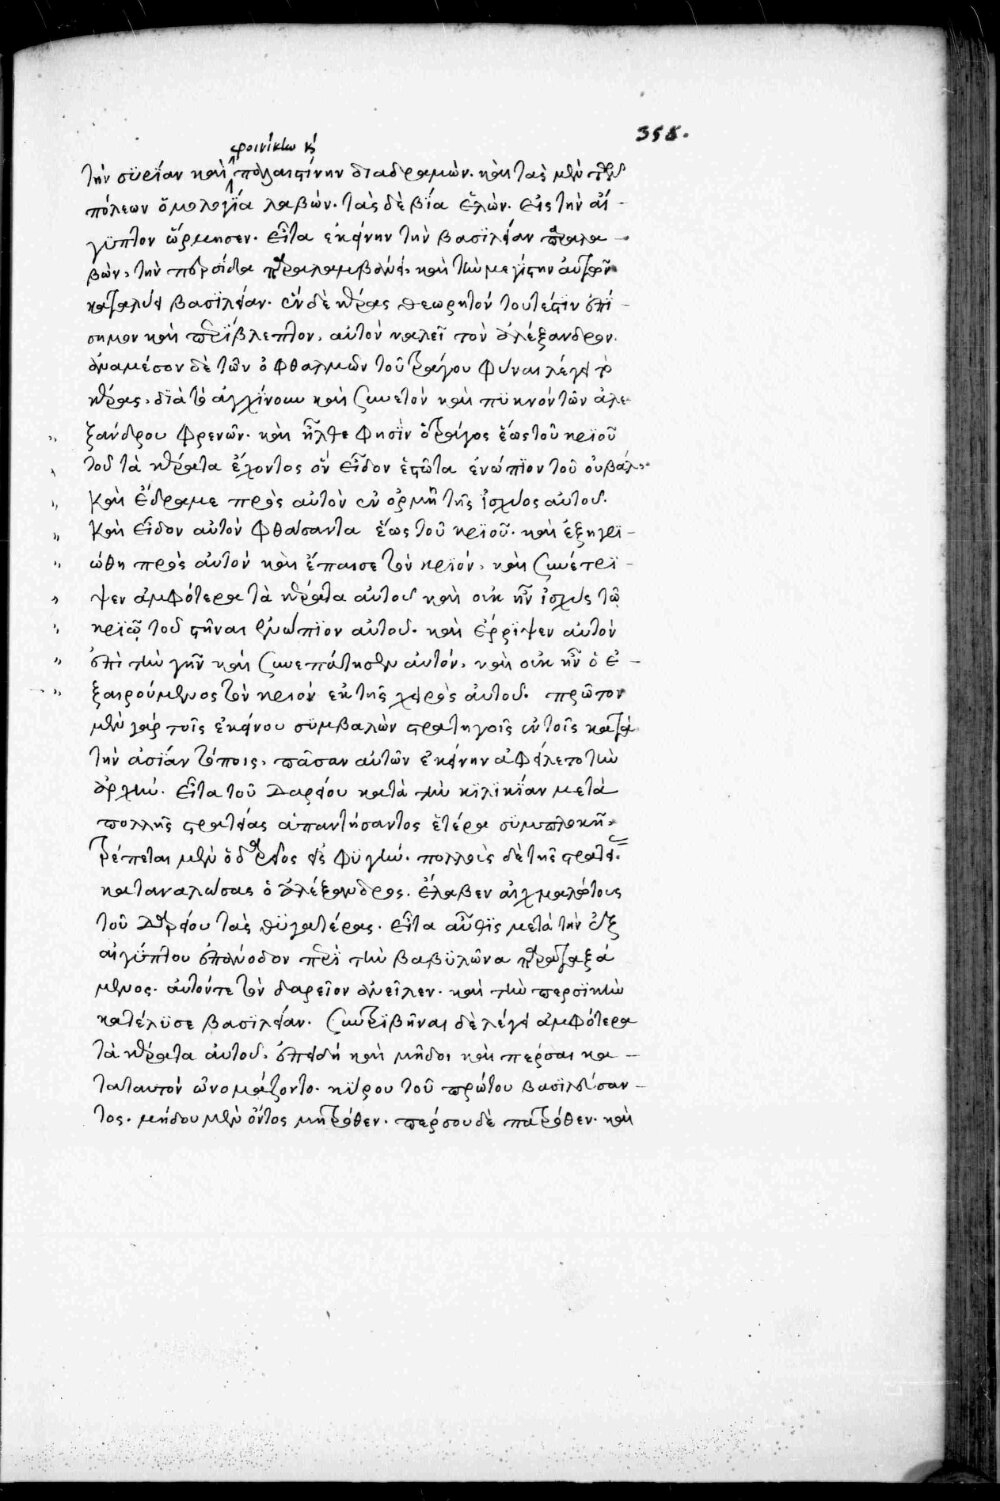 358.
φοινίκην κ
τὴν συρίαν καὶ παλαιστίνην διαδραμὼν. καὶ τὰς μὲν τῶν
πόλεων ὁμολογία λαβὼν. τὰς δὲ βία ἑλὼν. εἰς τὴν αἴ-
γϋπτον ὥρμησεν. εἶτα ἐκείνην τὴν βασϊλείαν παραλα-
βὼν, τὴν περσίδα παραλαμβάνει, καὶ τὴν μεγίστην αὐτῶν
καταλύει βασϊλείαν. ἐν δὲ κέρας θεωρητὸν τουτέστιν ἐπί-
σημον καὶ περίβλεπτον, αὐτὸν καλεῖ τὸν ἀλέξανδρον.
ἀναμέσον δὲ τῶν ὀφθαλμῶν τοῦ τράγου φῦναι λέγει τὸ
κέρας, διὰ τὸ ἀγχίνουν καὶ συνετὸν καὶ πϋκνὸν τῶν ἀλε-
ξάνδρου φρενῶν. καὶ ἦλθε φησὶν ὁ τράγος ἕως τοῦ κριοῦ
τοῦ τὰ κέρατα ἔχοντος ὃν εἶδον ἑστῶτα ἐνώπϊον τοῦ οὐβάλ.
καὶ ἔδραμε πρὸς αὐτὸν ἐν ὁρμῆ τῆς ἰσχύος αὐτοῦ.
καὶ εἶδον αὐτὸν φθάσαντα ἕως τοῦ κρϊοῦ. καὶ ἐξηγρϊ-
ώθη πρὸς αὐτὸν καὶ ἔπαισε τὸν κρϊόν, καὶ συνέτρϊ-
ψεν ἀμφότερα τὰ κέρατα αὐτοῦ καὶ οὐκ ἦν ἰσχὺς τῶ
κρϊῷ τοῦ στῆναι ἐνώπϊον αὐτοῦ. καὶ ἔρριψεν αὐτὸν
ἐπὶ τὴν γῆν καὶ συνεπάτησεν αὐτόν, καὶ οὐκ ἦν ὁ ἐ-
ξαιρούμενος τὸν κριὸν ἐκ τῆς χειρὸς αὐτοῦ. πρῶτον
μὲν γὰρ τοῖς ἐκείνου σϋμβαλὼν στρατηγοῖς ἐν τοῖς κατὰ
τὴν ἀσίαν τόποις, πᾶσαν αὐτῶν ἐκείνην ἀφείλετο τὴν
ἀρχήν. εἶτα τοῦ Δαρείου κατὰ τὴν κϊλικίαν μετὰ
πολλῆς στρατείας ἀπαντήσαντος ἑτέρα σϋμπλοκῆ,
τρέπεται μὲν ὁ δαρεῖος εἰς φϋγήν. πολλοὺς δὲ τῆς στρατει.
καταναλώσας ὁ ἀλέξανδρος. ἔλαβεν αἰχμαλώτους
τοῦ Δαρείου τὰς θϋγατέρας. εἶτα αὖθϊς μετὰ τὴν ἐξ
αἰγύπτου ἐπάνοδον περὶ τὴν βαβϋλῶνα παραταξά
μενος. αὐτόντε τὸν δαρεῖον ἀνεῖλεν. καὶ τὴν περσϊκὴν
κατέλϋσε βασϊλείαν. συντρϊβῆναι δὲ λέγει ἀμφότερα
τὰ κέρατα αὐτοῦ. ἐπειδὴ καὶ μῆδοι καὶ πέρσαι κα-
ταταυτὸν ὠνομάζοντο. κϋρου τοῦ πρώτου βασϊλεύσαν-
τος. μήδου μὲν ὄντος μητρόθεν. πέρσου δὲ πατρόθεν. καὶ